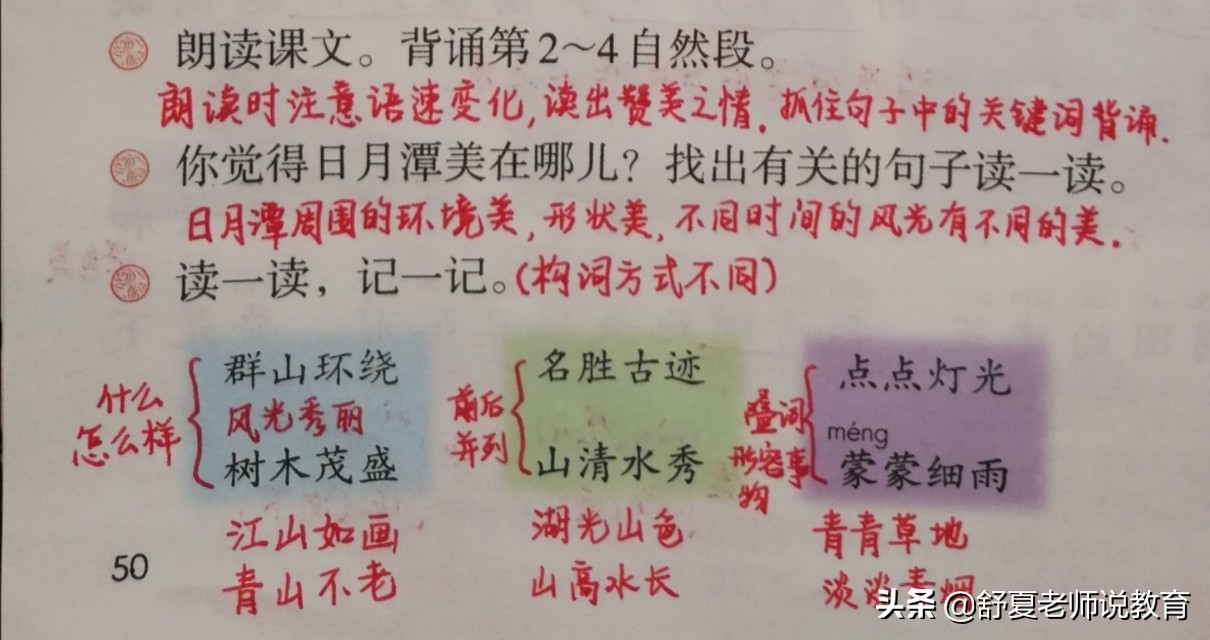 朗读课文。背诵第2～4自然段。
朗读时注意语速变化,读出赞美之情。抓住句子中的关键词背诵.
你觉得日月潭美在哪儿？找出有关的句子读一读。
日月潭周围的环境美,形状美,不同时间的风光有不同的美.
读一读，记一记。(构词方式不同)
什么
怎么样
群山环绕
风光秀丽
树木茂盛
江山如画
青山不老
前后
并列
名胜古迹
山清水秀
湖光山色
山高水长
叠词
形容事
物
点点灯光
méng
蒙蒙细雨
青青草地
淡淡青烟
50
头条 @舒夏老师说教育